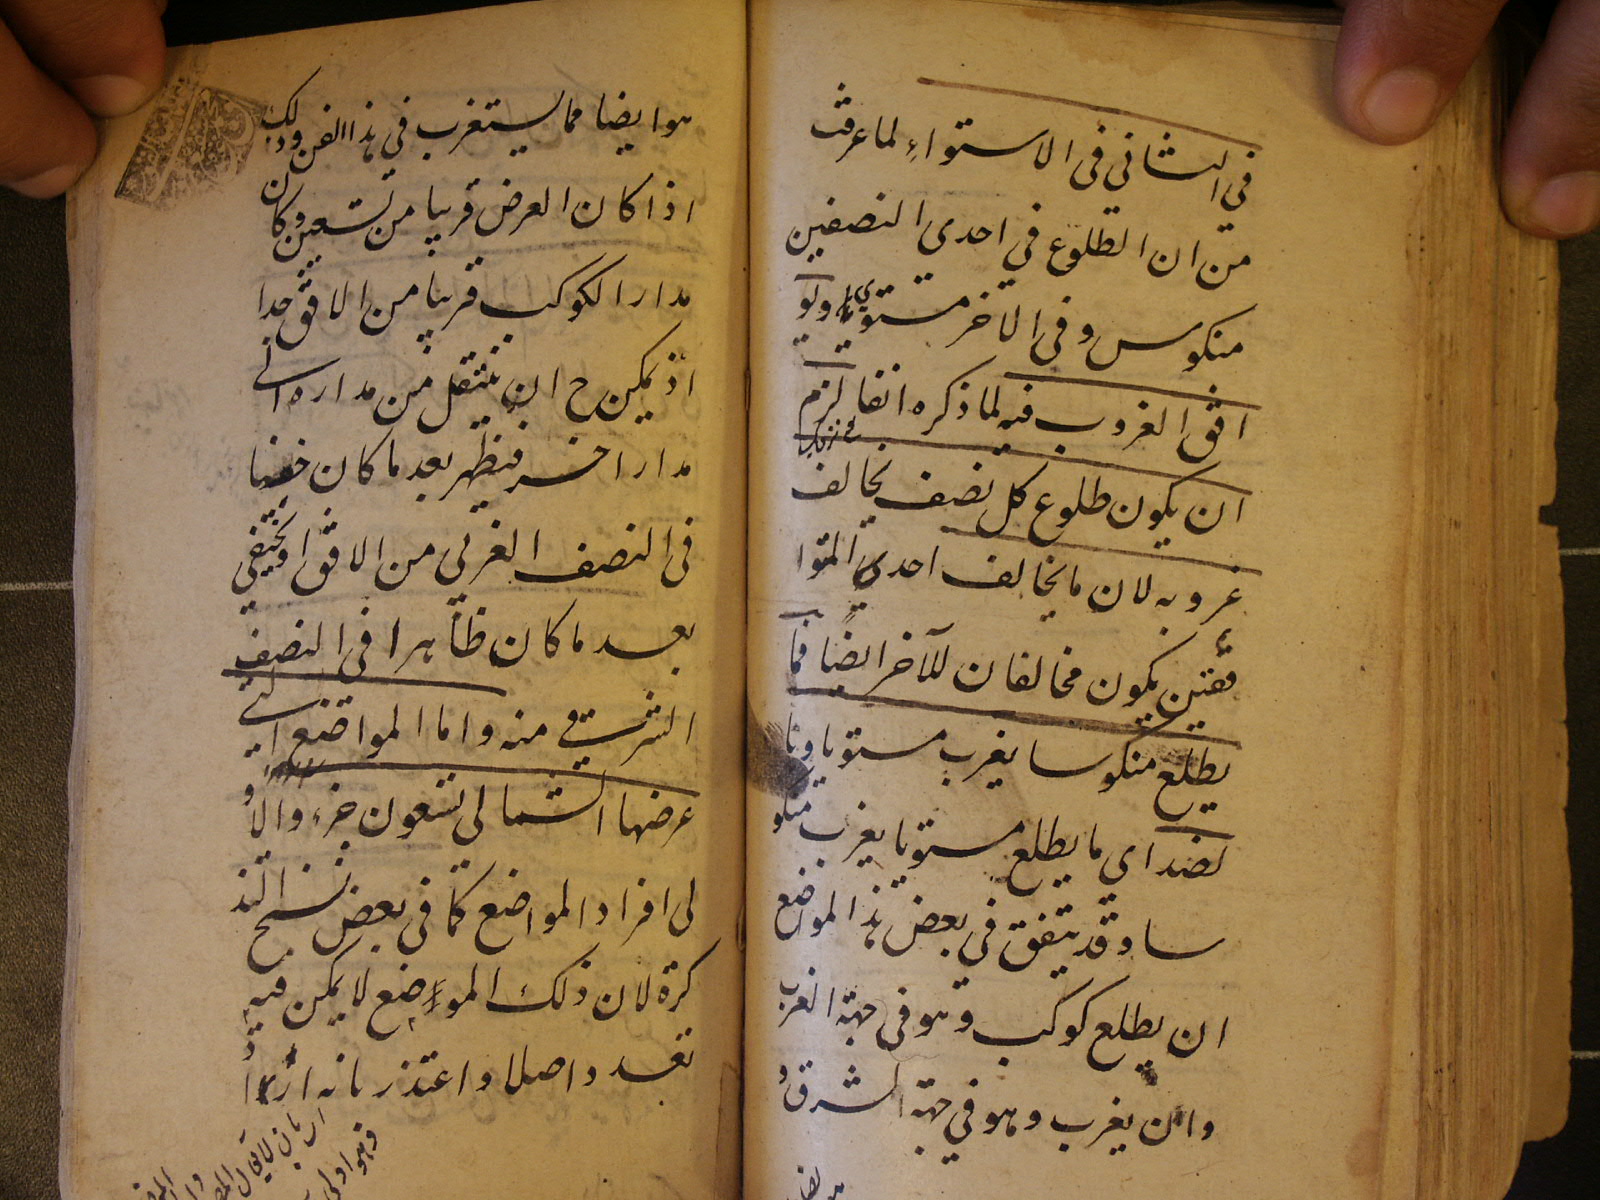 في الثاني في الاستواء لما عرفت
من ان الطلوع في احدى النصفين
منكوس وفي الآخر مستوي ولو
افق الغروب فيه لما ذكره انفا لزم
ان يكون طلوع كل نصف يخالف
غروبه لان ما يخالف احدى المتوا
فقتين يكون مخالفا للآخر ايضا فما
يطلع منكوسا يغرب مستويا وبا
لضد اي ما يطلع مستويا يغرب منكو
سا وقد يتفق في بعض هذا المواضع
ان يطلع كوكب وهو في جهة الغرب
وان يغرب وهو في جهة الشرق و
هو ايضا مما يستغرب في هذا الفن وذلك
اذا كان العرض قريبا من تسعين وكان
مدار الكوكب قريبا من الافق جدا
اذ يمكن ح ان ينتقل من مداره الى
مدار اخر فيظهر بعد ما كان خفيا
في النصف الغربي من الافق او يختفي
بعد ما كان ظاهرا في النصف
الشرقي منه واما المواضع التي
عرضها الشمالي تسعون جزء والاو
لى افراد المواضع كما في بعض نسخ التذ
كرة لان ذلك الموضع لا يمكن فيه
تعدد اصلا واعتذر بانه اراد